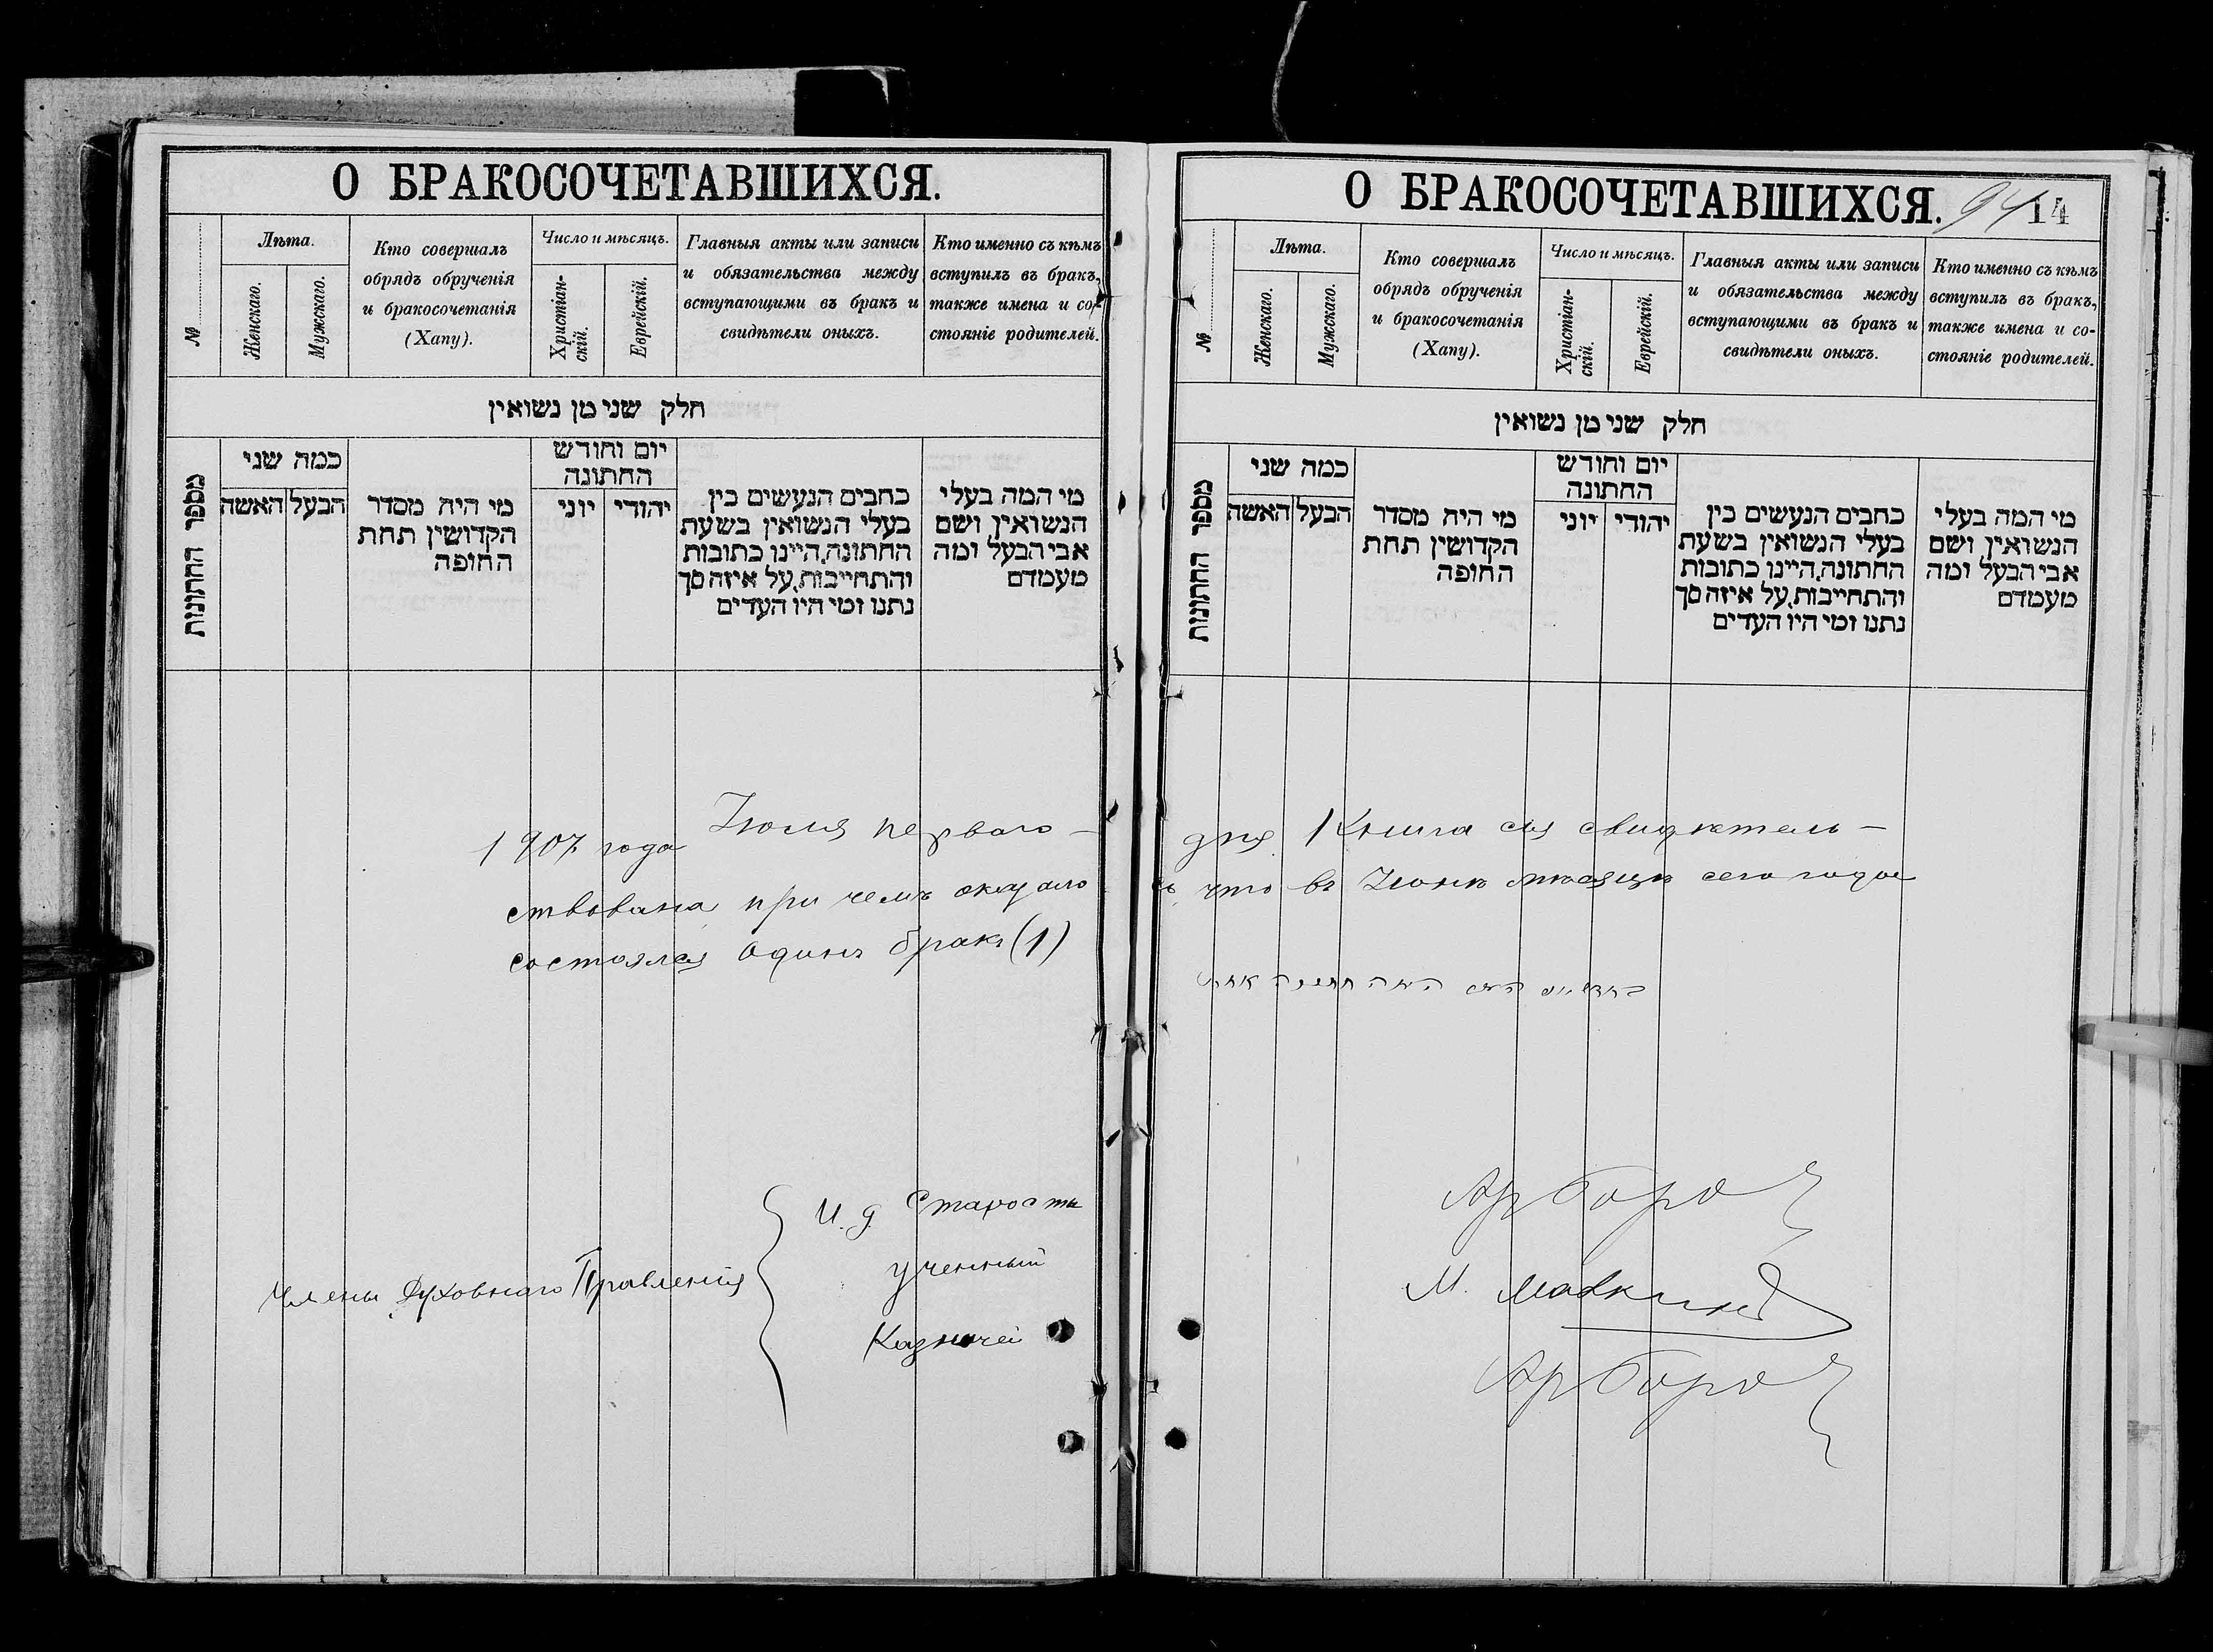 О БРАКОСОЧЕТАВШИХСЯ.
№
Лѣта.
Женскаго.
Мужскаго.
Кто совершалъ
обрядъ обрученія
и бракосочетанія
(Хапу).
Число и мѣсяцъ.
Христіан-
скій.
Еврейскій.
Главныя акты или записи
и обязательства между
вступающими въ бракъ и
свидѣтели оныхъ.
Кто именно съ кѣмъ
вступилъ въ бракъ,
также имена и со-
стояніе родителей.
חלק שני מן נשואין
מספר החתונות
כמה שני
הבעל
האשה
מי היה מסדר
הקדושין תחת
החופה
יום וחודש
החתונה
יהודי
יוני
כתבים הנעשים בין
בעלי הנשואין בשעת
החתונה, היינו כתובות
והתחייבות, על איזה סך
נתנו ומי היו העדים
מי המה בעלי
הנשואין ושם
אבי הבעל ומה
מעמדם
1907 года Іюля перваго –
ствована, при чемъ оказало
состоялся одинъ бракъ (1)
Члены Духовнаго Правленія
И. д. Старосты
ученный
Казначей
О БРАКОСОЧЕТАВШИХСЯ.
94
14
№
Лѣта.
Женскаго.
Мужскаго.
Кто совершалъ
обрядъ обрученія
и бракосочетанія
(Хапу).
Число и мѣсяцъ.
Христіан-
скій.
Еврейскій.
Главныя акты или записи
и обязательства между
вступающими въ бракъ и
свидѣтели оныхъ.
Кто именно съ кѣмъ
вступилъ въ бракъ,
также имена и со-
стояніе родителей.
חלק שני מן נשואין
מספר החתונות
כמה שני
הבעל
האשה
מי היה מסדר
הקדושין תחת
החופה
יום וחודש
החתונה
יהודי
יוני
כתבים הנעשים בין
בעלי הנשואין בשעת
החתונה, היינו כתובות
והתחייבות, על איזה סך
נתנו ומי היו העדים
מי המה בעלי
הנשואין ושם
אבי הבעל ומה
מעמדם
дня Книга сія свидѣтель –
сь, что въ Іюнѣ мѣсяцѣ сего года
חתונה אחת
М.